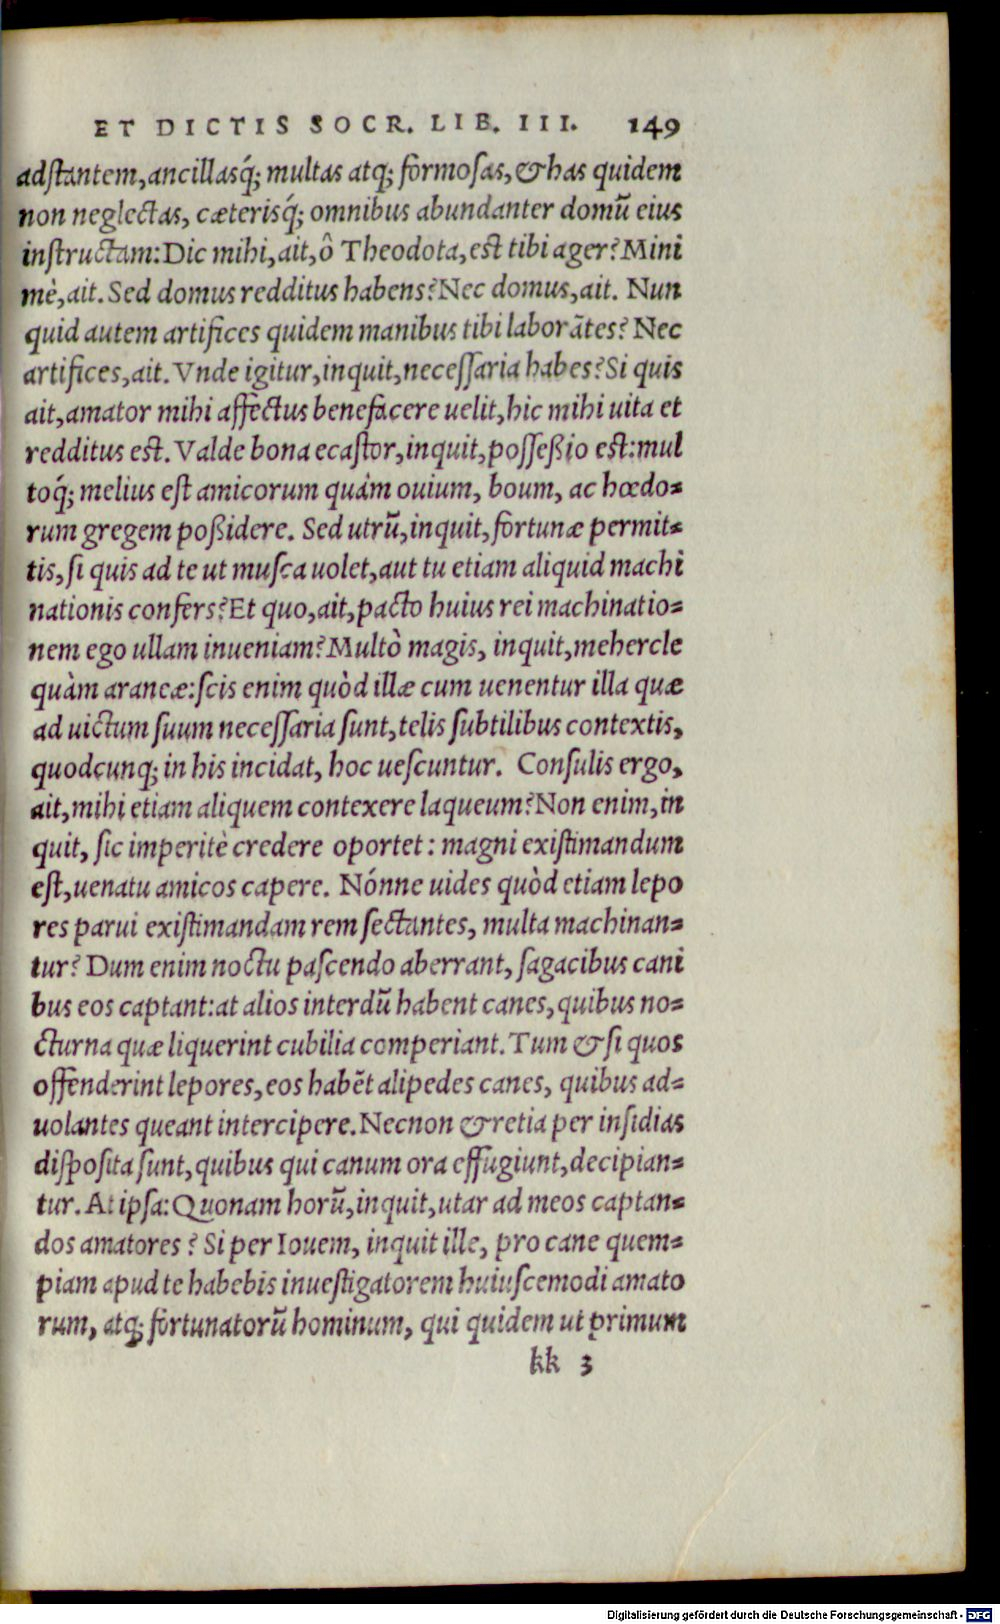 ET DICTIS SOCR. LIB. III. 149
adſtantem, ancillasq́; multas atq; formoſas, & has quidem
non neglectas, cæterisq́; omnibus abundanter domū eius
inſtructam: Dic mihi, ait, ô Theodota, eſt tibi ager? Mini
mè, ait. Sed domus redditus habens? Nec domus, ait. Nun
quid autem artifices quidem manibus tibi laborãtes? Nec
artifices, ait. Vnde igitur, inquit, neceſſaria habes? Si quis
ait, amator mihi affectus benefacere uelit, hic mihi uita et
redditus eſt. Valde bona ecaſtor, inquit, poſſeßio eſt: mul
toq́; melius eſt amicorum quàm ouium, boum, ac hœdo=
rum gregem poßidere. Sed utrū, inquit, fortunæ permit=
tis, ſi quis ad te ut muſca uolet, aut tu etiam aliquid machi
nationis confers? Et quo, ait, pacto huius rei machinatio=
nem ego ullam inueniam? Multò magis, inquit, mehercle
quàm araneæ: ſcis enim quòd illæ cum uenentur illa quæ
ad uictum ſuum neceſſaria ſunt, telis ſubtilibus contextis,
quodcunq; in his incidat, hoc ueſcuntur. Conſulis ergo,
ait, mihi etiam aliquem contexere laqueum? Non enim, in
quit, ſic imperitè credere oportet: magni exiſtimandum
eſt, uenatu amicos capere. Nónne uides quòd etiam lepo
res parui exiſtimandam rem ſectantes, multa machinan=
tur? Dum enim noctu paſcendo aberrant, ſagacibus cani
bus eos captant: at alios interdū habent canes, quibus no=
cturna quæ liquerint cubilia comperiant. Tum & ſi quos
offenderint lepores, eos habẽt alipedes canes, quibus ad=
uolantes queant intercipere. Necnon & retia per inſidias
diſpoſita ſunt, quibus qui canum ora effugiunt, decipian=
tur. At ipſa: Quonam horū, inquit, utar ad meos captan=
dos amatores? Si per Iouem, inquit ille, pro cane quem=
piam apud te habebis inueſtigatorem huiuſcemodi amato
rum, atq; fortunatorū hominum, qui quidem ut primum
kk 3
Digitalisierung gefördert durch die Deutsche Forschungsgemeinschaft - DFG